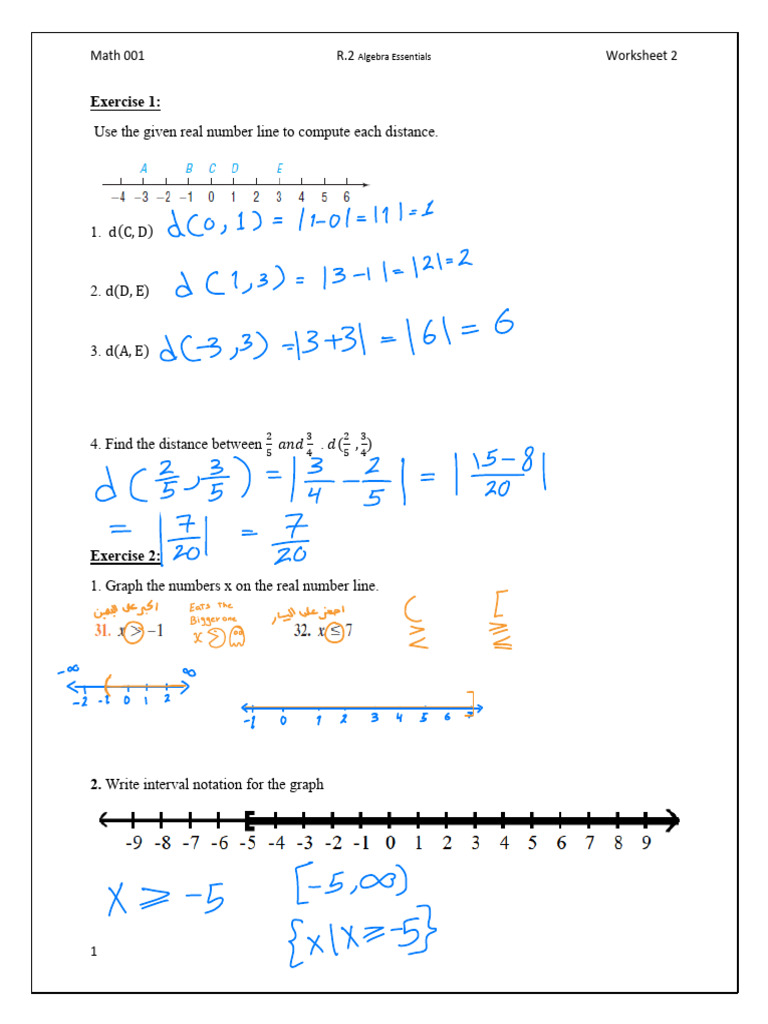 Math 001 R.2 Algebra Essentials Worksheet 2
Exercise 1:
Use the given real number line to compute each distance.
A B C D E
−4 −3 −2 −1 0 1 2 3 4 5 6
1. d(C, D) d(0,1) = |1−0| = |1| = 1
2. d(D, E) d(1,3) = |3−1| = |2| = 2
3. d(A, E) d(−3,3) = |3+3| = |6| = 6
4. Find the distance between 2/5 and 3/4 . d(2/5 , 3/4)
d(2/5, 3/5) = |3/4 − 2/5| = |15−8/20|
= |7/20| = 7/20
Exercise 2:
1. Graph the numbers x on the real number line.
اكبر على اليمين Eats The اصغر على اليسار ( [
Bigger one
31. x > −1 x > 32. x ≤ 7 > < ≥ ≤
−∞ ∞
-2 -1 0 1 2
-1 0 1 2 3 4 5 6 7
2. Write interval notation for the graph
-9 -8 -7 -6 -5 -4 -3 -2 -1 0 1 2 3 4 5 6 7 8 9
x ≥ −5 [−5,∞)
{x|x ≥ −5}
1